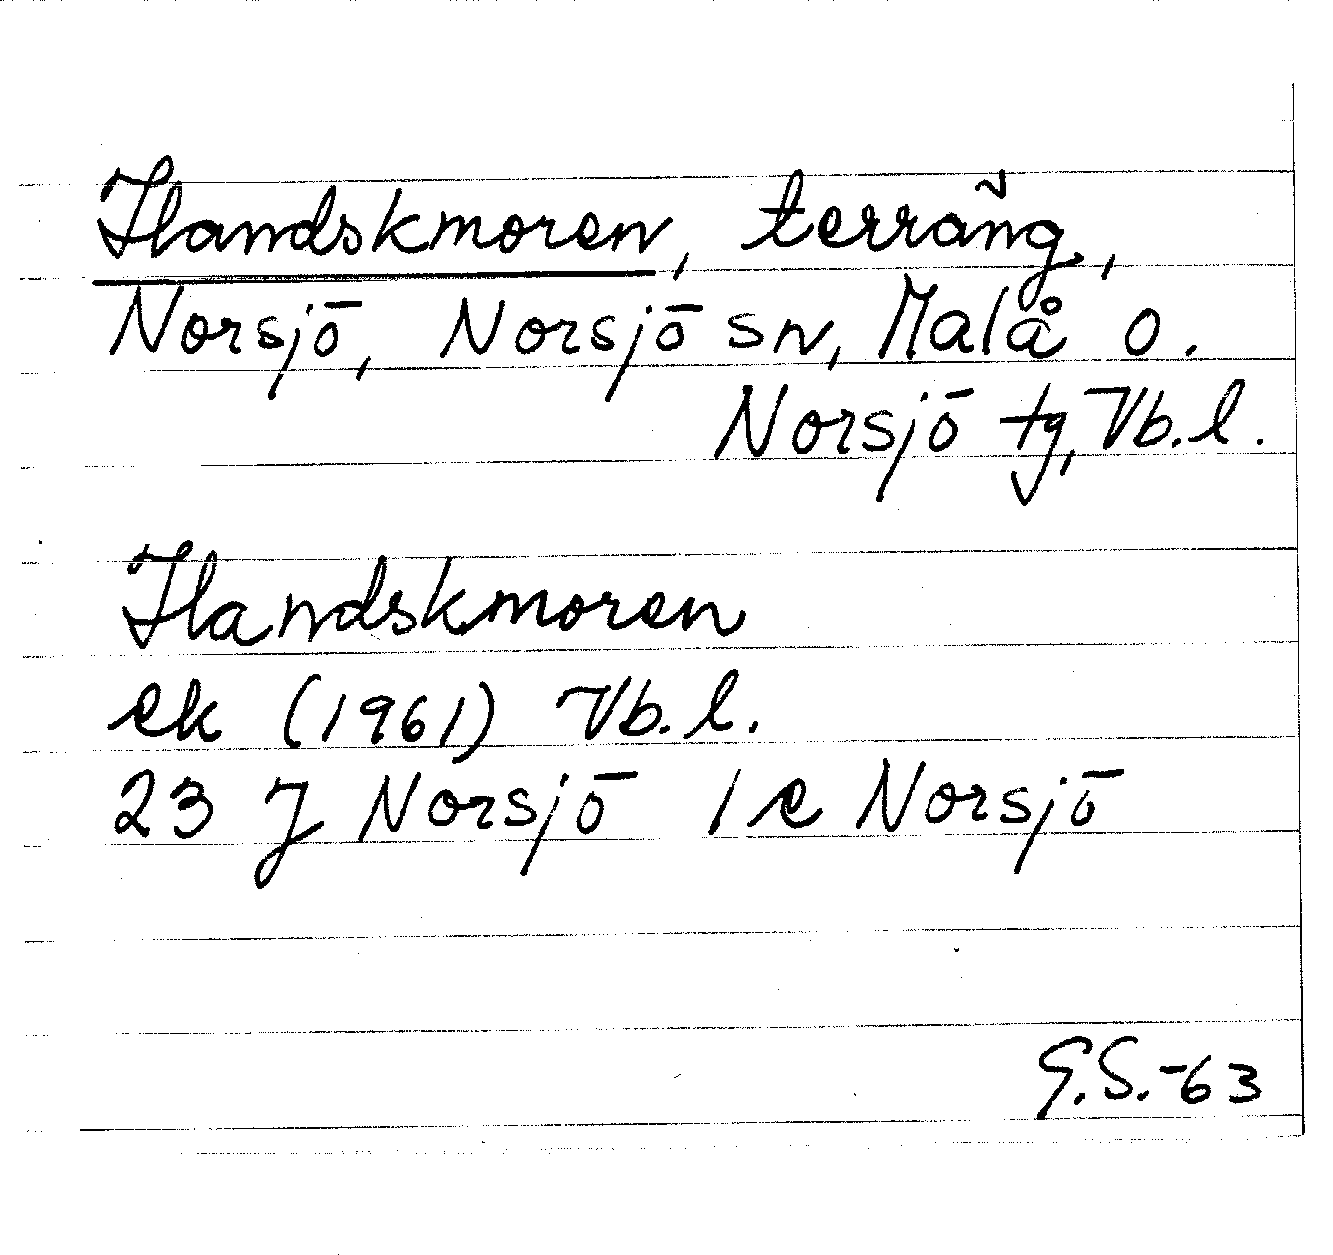 Handskmoren, terräng,
Norsjö, Norsjö sn, Malå o.
Norsjö tg, Vb. l.
Handskmoren
ek (1961) Vb. l.
23 J Norsjö 1 e Norsjö
G.S.-63